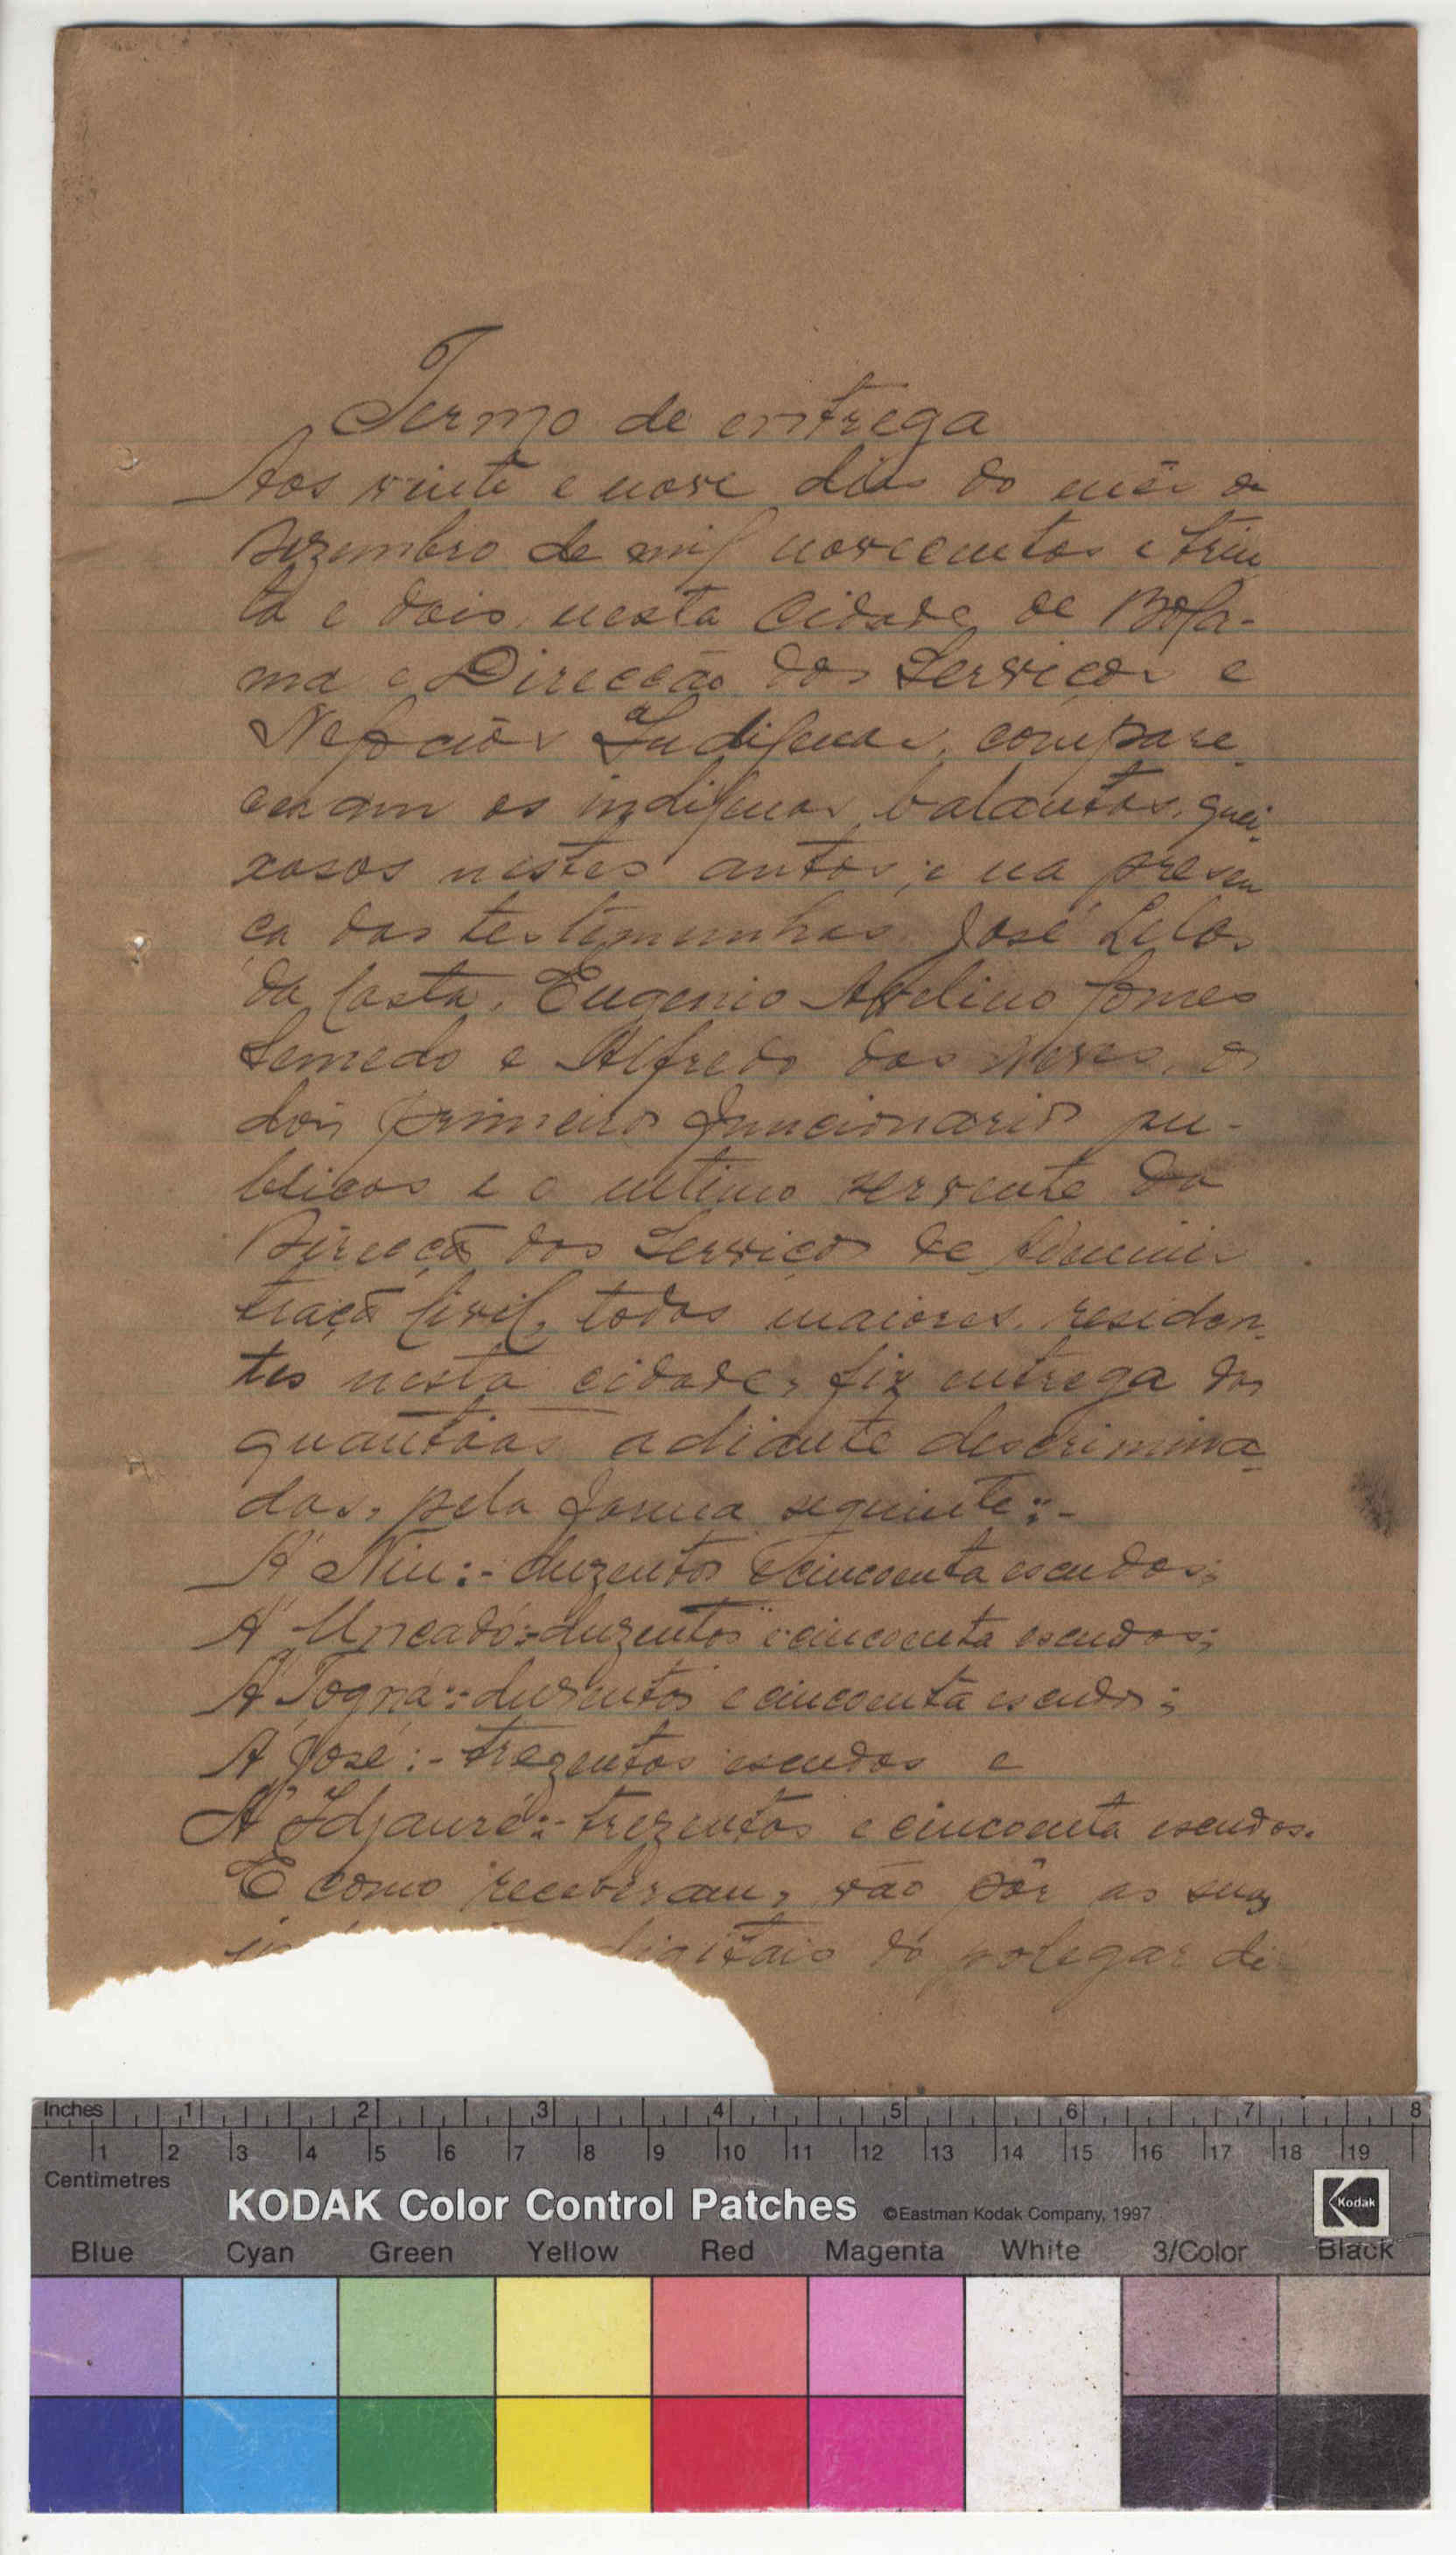 Termo de entrega
Aos vinte e nove dias do mês de
Dezembro de mil novecentos e trin
ta e dois, nesta Cidade de Bola-
ma e Direcção dos Serviços e
Negocios Indigenas, compare
ceram os indigenas balantas, quei
xosos nestes autos, e na presen
ça das testemunhas José
da Costa, Eugenio Avelino Gomes
Semedo e Alfredo das Neves, os
dois primeiros funcionarios pu-
blicos e o ultimo servente da
Direcção dos Serviços de Adminis
tração Civil, todos maiores, residen
tes nesta cidade, fiz entrega das
quantias adiante descrimina
das, pela forma seguinte:-
A Niu:- duzentos e cincoenta escudos;
A Uncadó:- duzentos e cincoenta escudos;
A Togná:- duzentos e cincoenta escudos;
A José:- trezentos escudos e
A Idjauré:- trezentos e cincoenta escudos.
E como receberam, vão pôr as suas
digitais do polegar di
Inches 1 2 3 4 5 6 7 8
1 2 3 4 5 6 7 8 9 10 11 12 13 14 15 16 17 18 19
Centimetres
KODAK Color Control Patches ©Eastman Kodak Company, 1997 Kodak
Blue Cyan Green Yellow Red Magenta White 3/Color Black